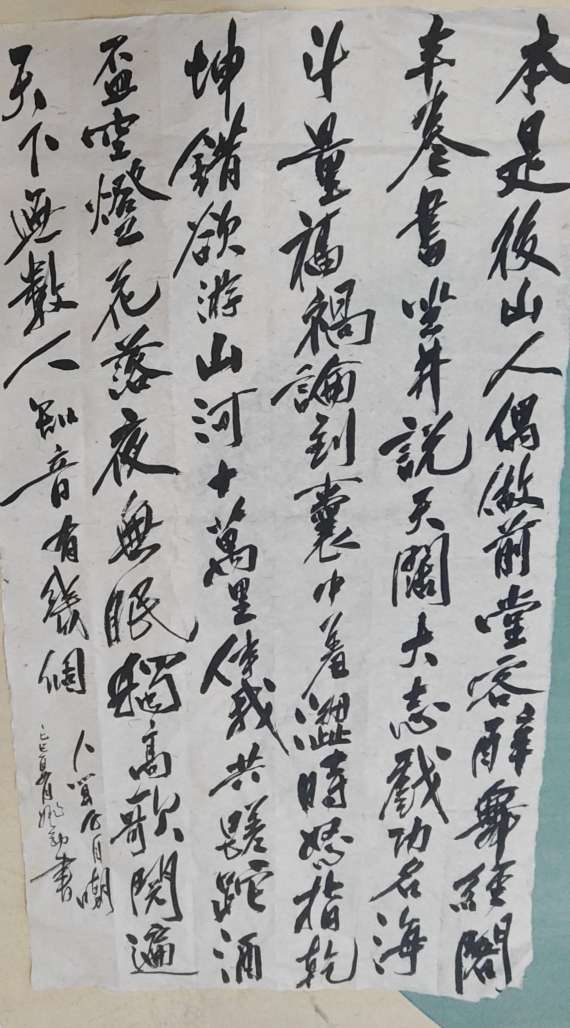 本是後山人偶做前堂客醉舞經閣
半卷書坐井說天闊大志戲功名海
斗量福禍論到囊中羞澀時怒指乾
坤錯欲游山河十萬里伴我共蹉跎酒
盃空燈花落夜無眠獨高歌閱遍
天下無數人知音有幾個
人間
自嘲
書